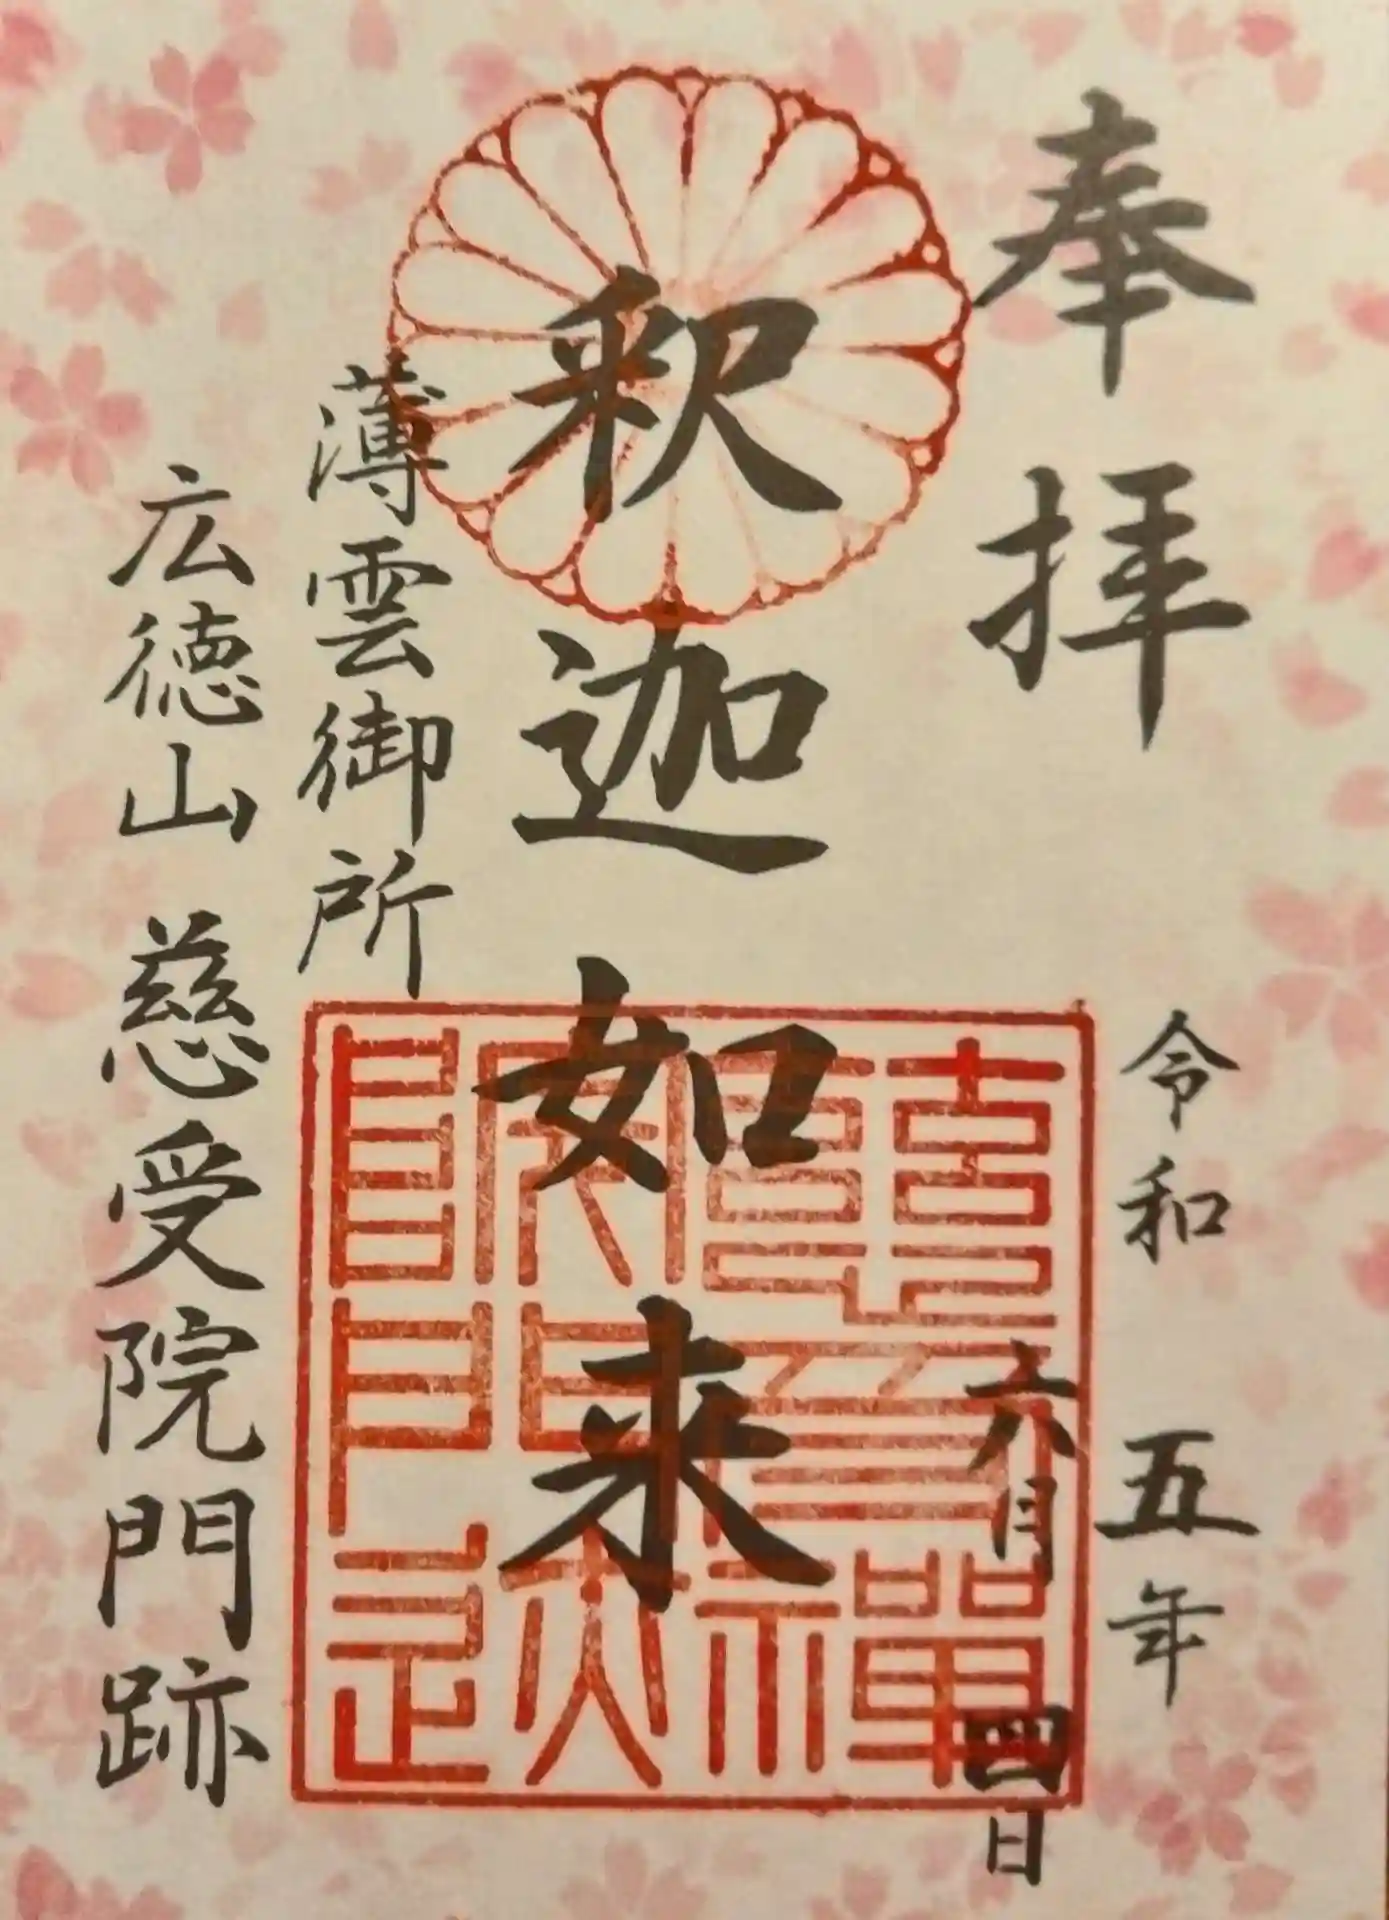 奉拝
令和五年
六月四日
釈迦如来
薄雲御所
広徳山 慈受院門跡